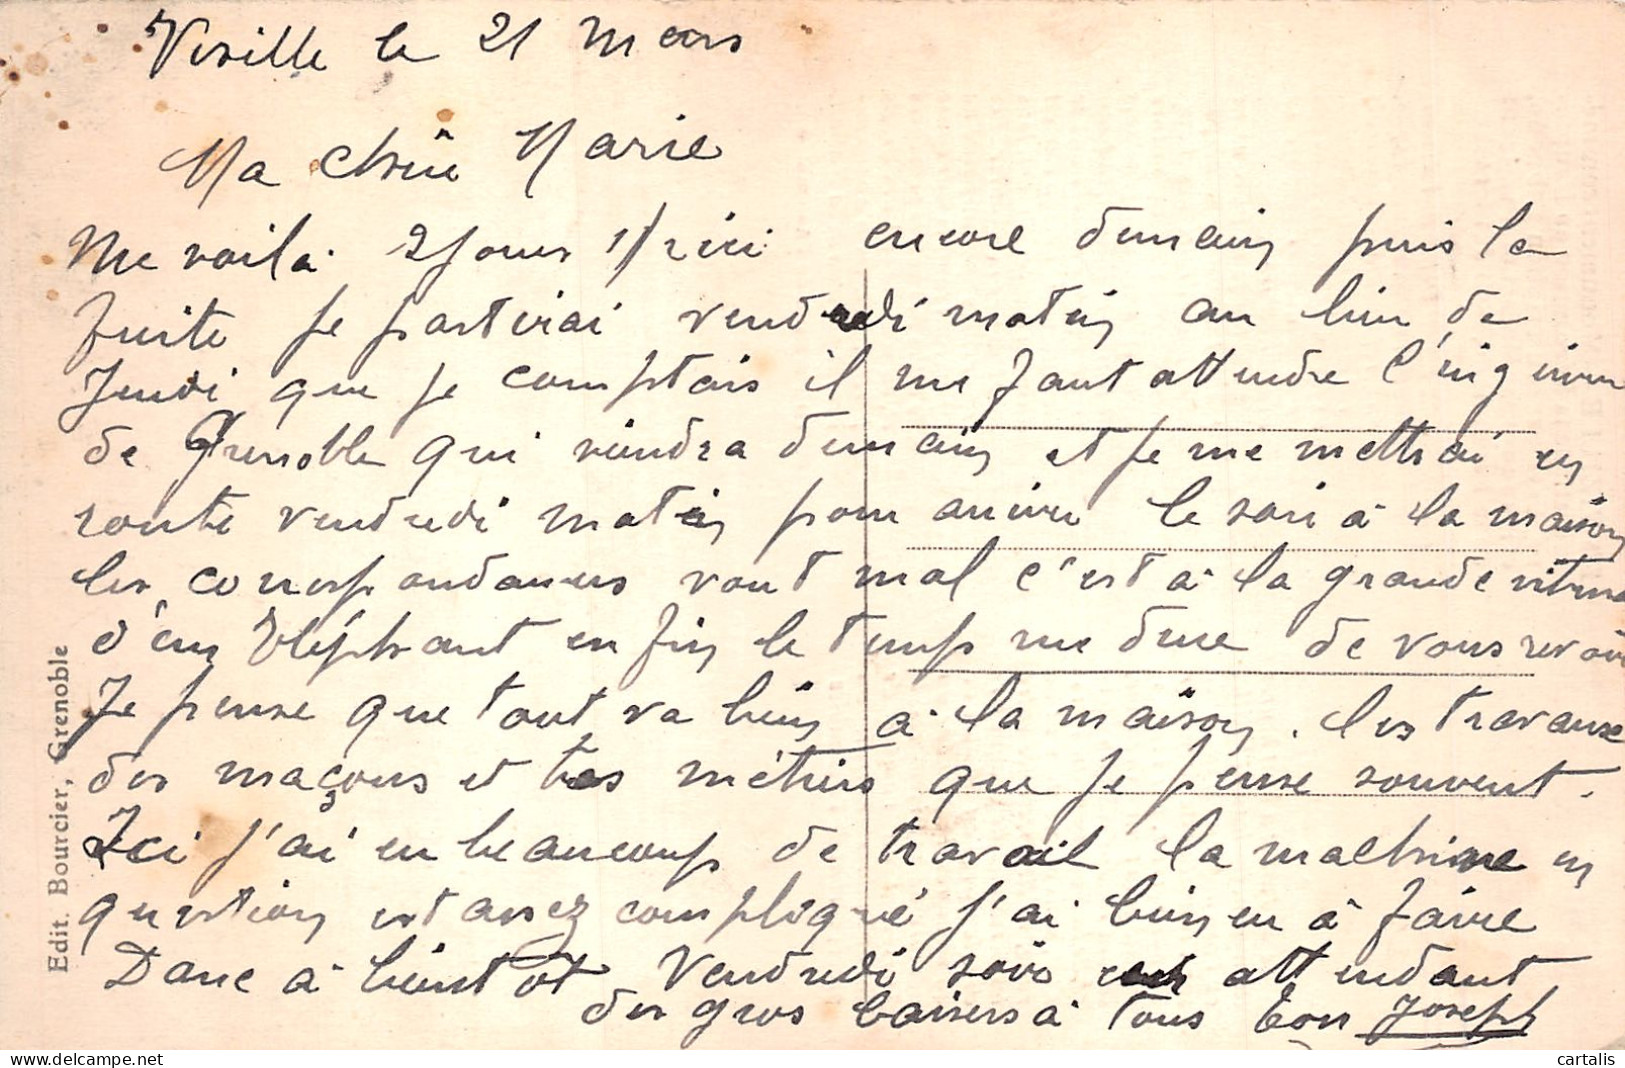 Visille le 21 Mars
Ma chère Marie
Me voilà 2 Jours 1/2 ici encore demain puis la
fuite je partirai vendredi matin au lieu de
Jeudi que je comptais il me faut attendre l'ingénieur
de Grenoble qui viendra demain et je me mettrai en
route vendredi matin pour arriver le soir à la maison
les correspondances vont mal c'est à la grande vitesse
d'un Eléphant enfin le temps me dure de vous revoir
Je pense que tout va bien à la maison. les travaux
des maçons et tes métiers que je pense souvent.
Ici j'ai eu beaucoup de travail la machine en
question est assez compliqué j'ai bien eu à faire
Donc à bientôt Vendredi soir en attendant
des gros baisers à tous ton Joseph
Edit. Bourcier, Grenoble
cartalis